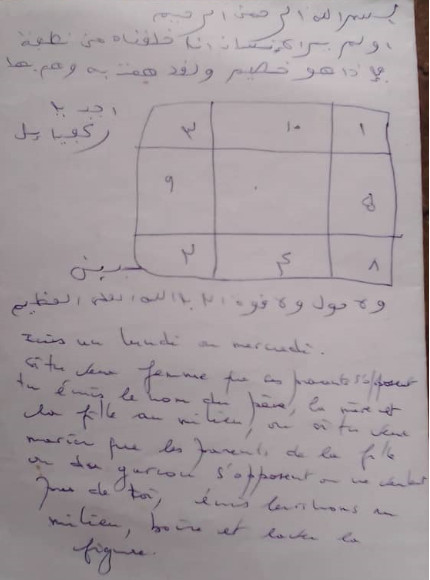 بسم الله الرحمن الرحيم
اولم ير الانسان انا خلقناه من نطفة
فاذا هو خصيم ولقد همت به وهم بها
اجب يا
٣ ١٠ ١
٩
٢ ٤ ٨
ولا حول ولا قوة الا بالله العلي العظيم
un lundi ou mercredi.
si tu veux femme que ses parents s'opposent
tu écris le nom du père, la mère et
la fille au milieu, ou si tu veux
marier que les parents de la fille
ou du garçon s'opposent ou ne veulent
pas de toi, écris leurs noms au
milieu, boire et laver la
figure.